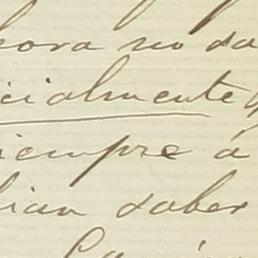 hora no sa
icialmente
siempre á
bian saber